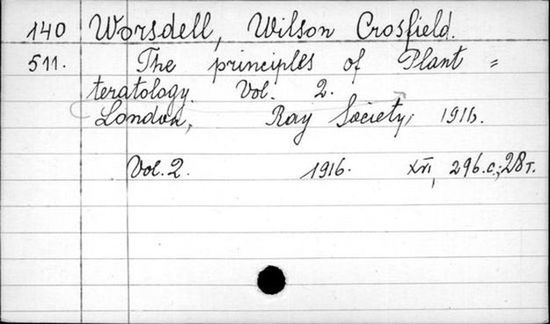 140 Worsdell, Wilson Crosfield.
511. The principles of Plant =
teratology. Vol. 2.
London, Ray Society, 1916.
Vol. 2. 1916. XVI, 296.c.; 28 T.